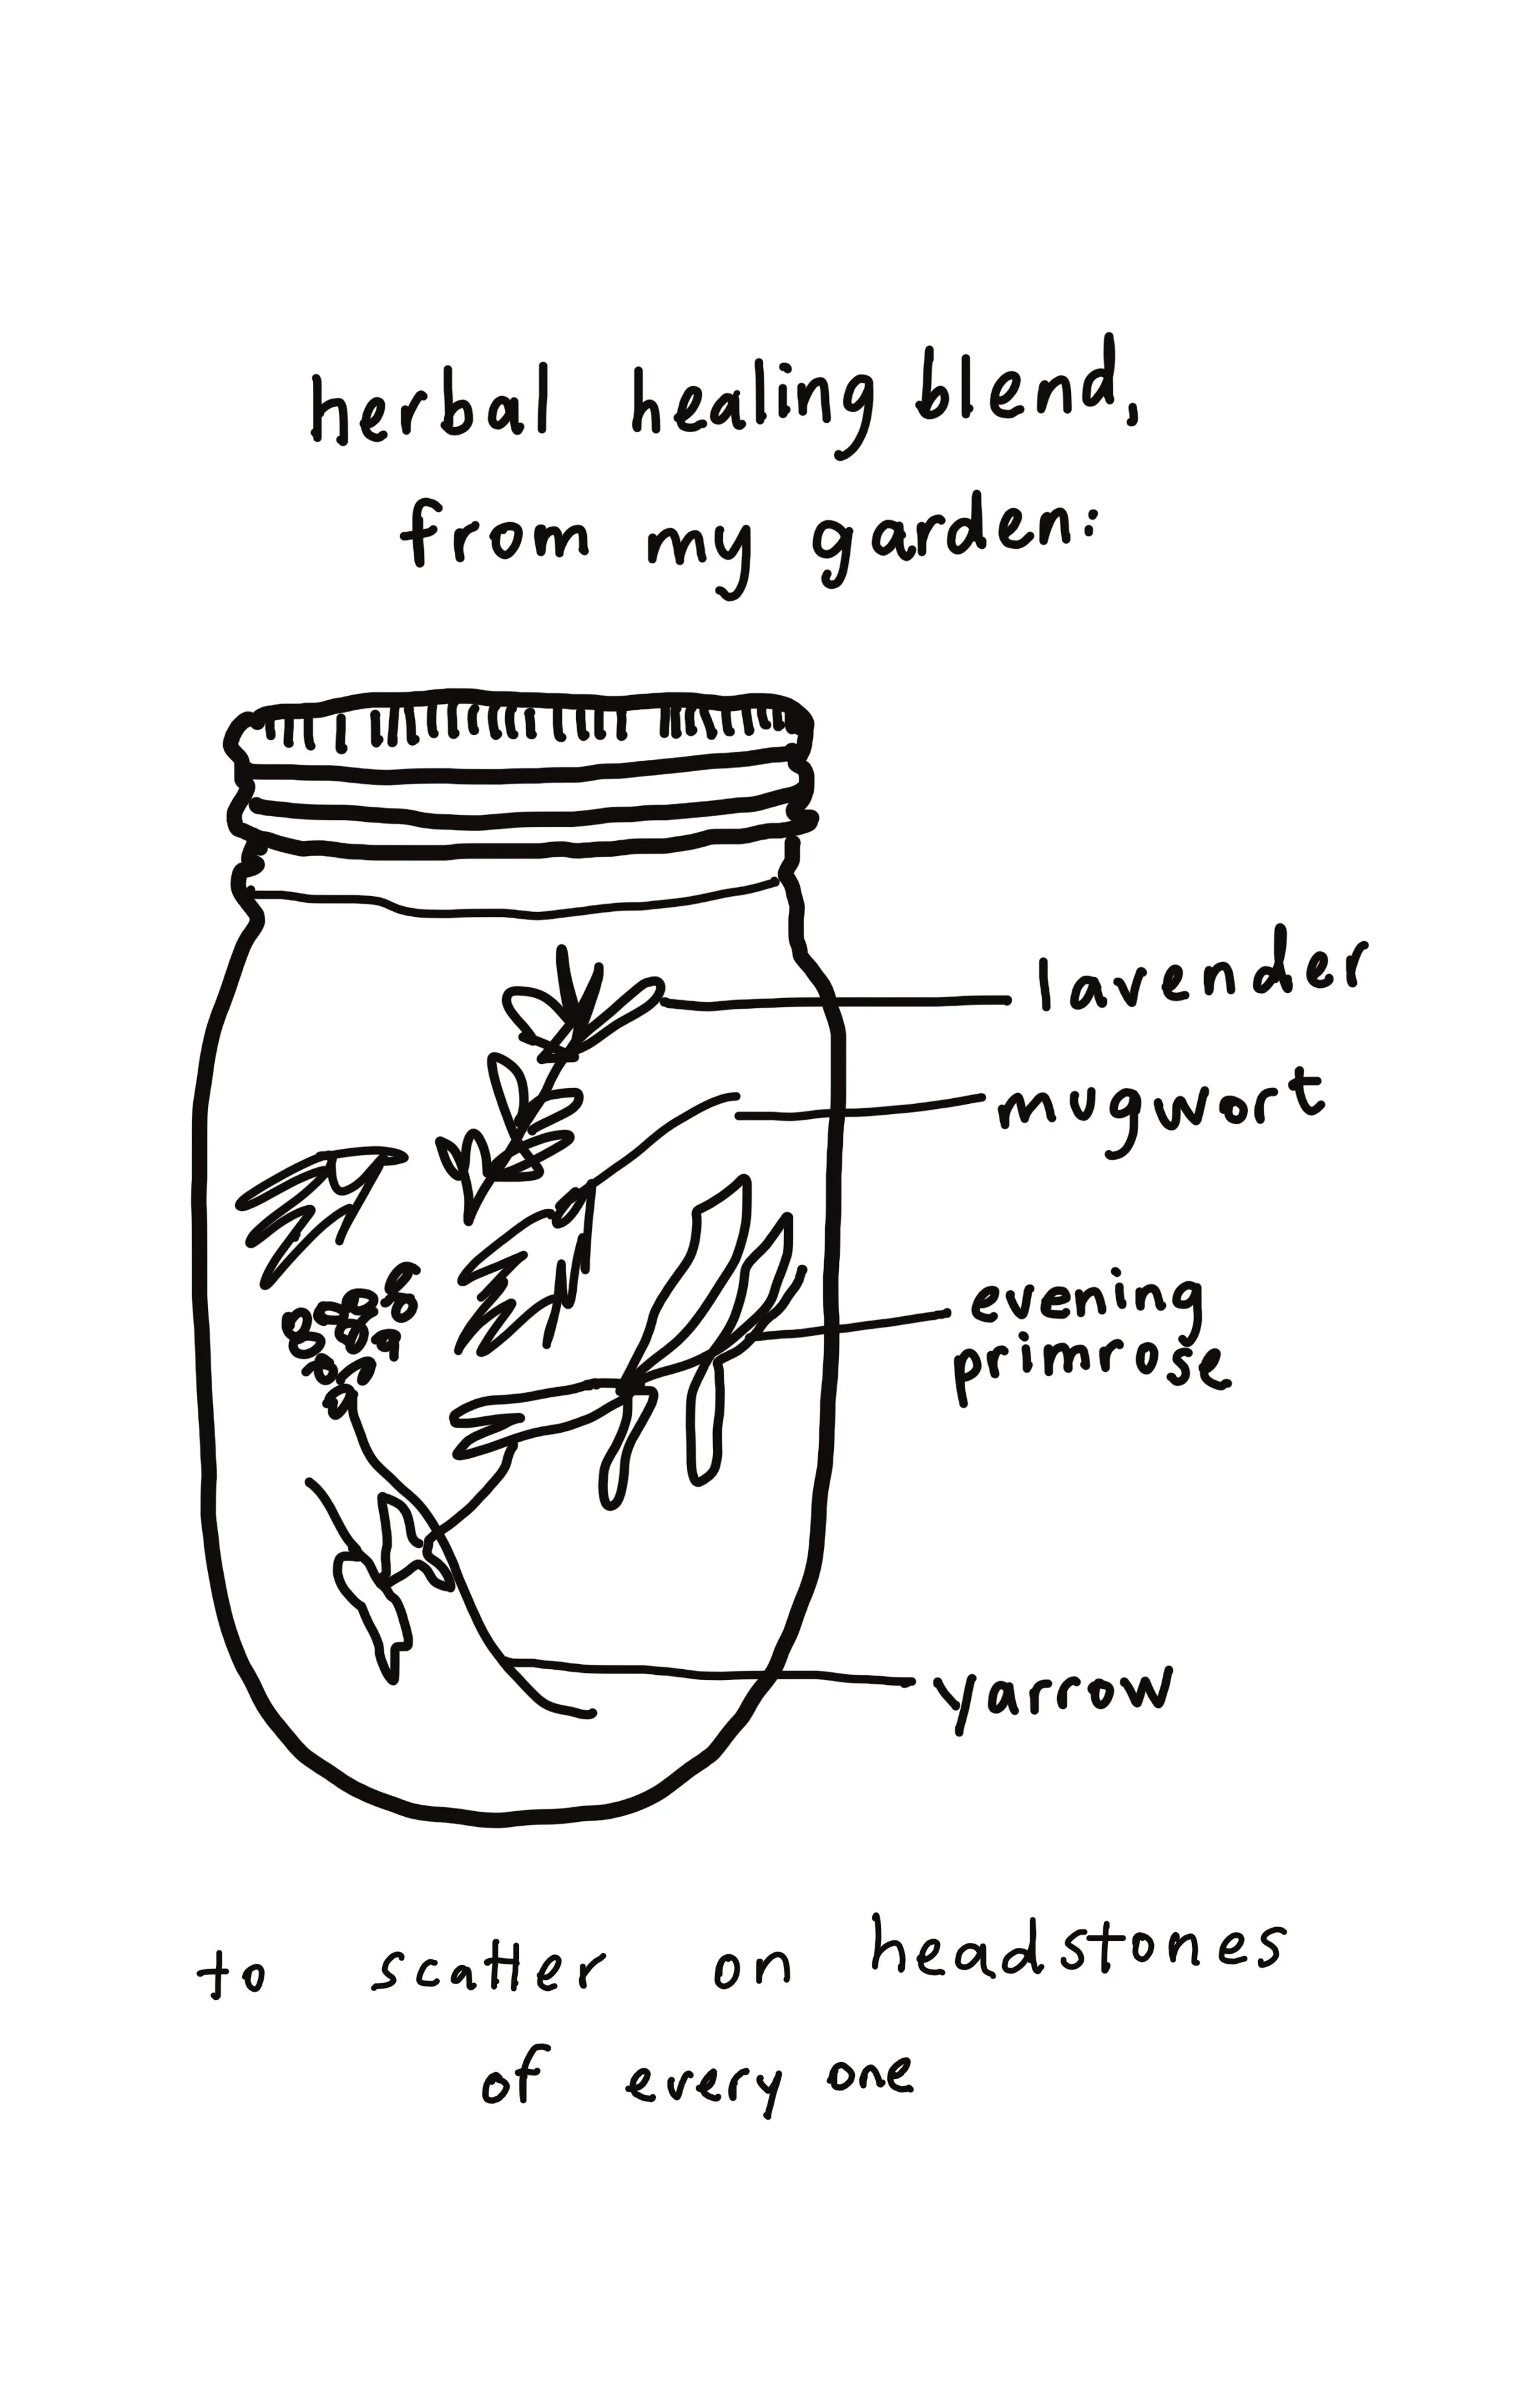 herbal healing blend,
from my garden:
lavender
mugwort
evening
primrose
yarrow
to scatter on headstones
of every one